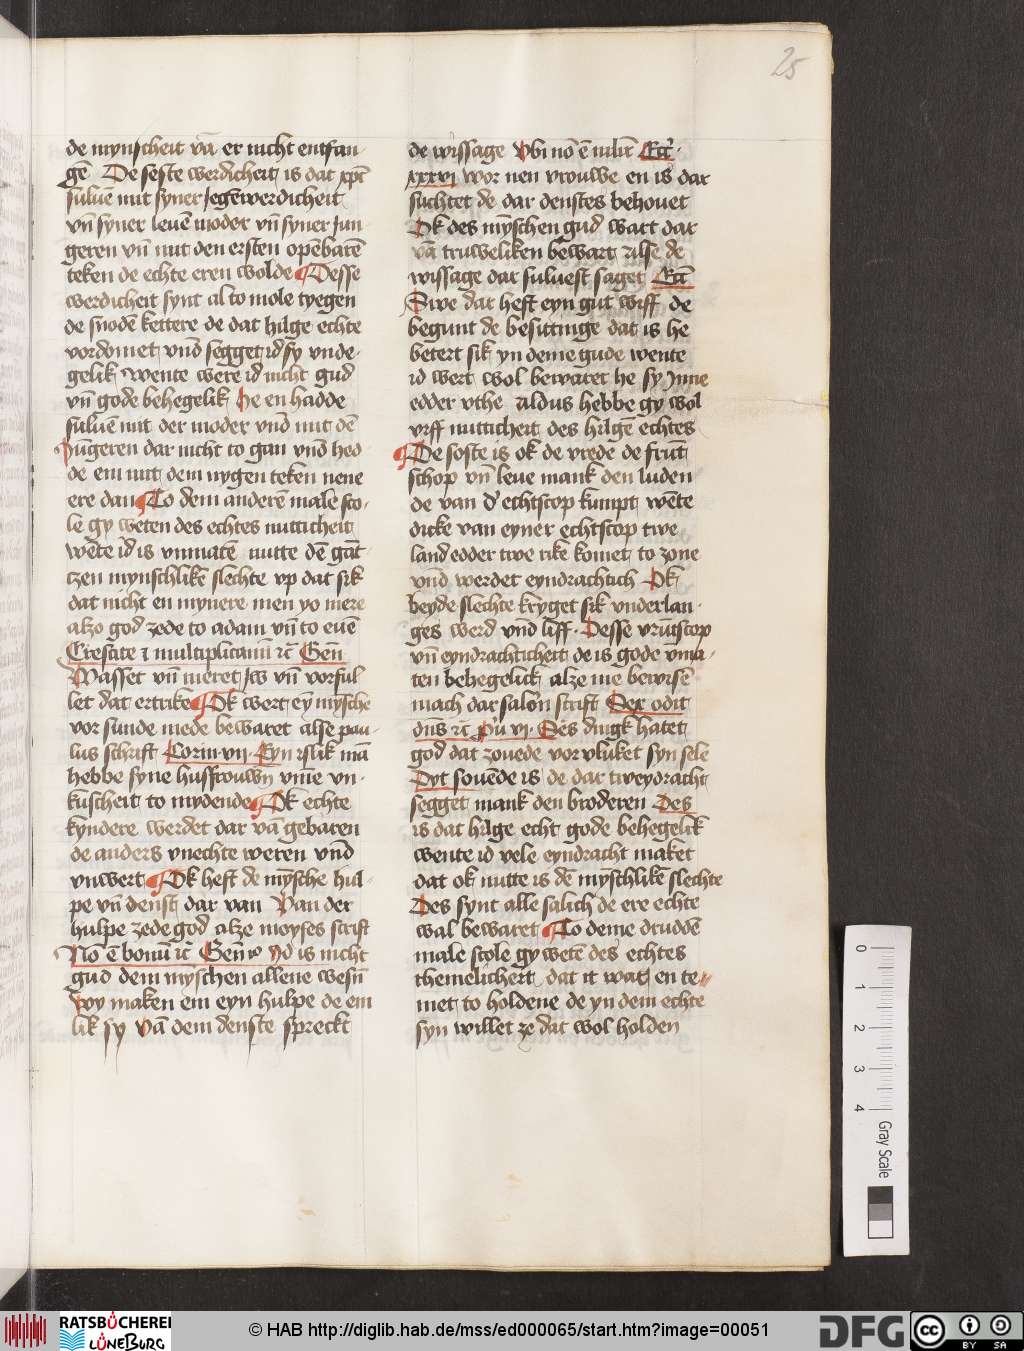 25
de mynscheit vā er nicht entfan-
gē De seste werdicheit is dat xpc̄
suluē mit syner jegēwerdicheit
vn̄ syner leuē moder vn̄ syner Jun
geren vn̄ mit den ersten opēbarē
teken de echte eren wolde Desse
werdicheit synt al to mole tyegen
de snodē kettere de dat hilge echte
vordomet vn̄d segget id sy vnde-
gelik wente were id nicht gud
vn̄ gode behegelik he en hadde
suluē mit der moder vn̄d mit dē
Jūgeren dar nicht to gan vn̄d hed
de em mit dem nygen teken nene
ere dan To dem anderē male sco-
le gy weten des echtes nutticheit
wēte id is vnmatē nutte dē gāt
czen mynschlikē slechte vp dat sik
dat nicht en mynere men yo mere
alzo god zede to adam vn̄ to euē
Crescite ⁊ multiplicamī ⁊c̄ Gen̄
Wasset vn̄ meret Jw vn̄ vorful
let dat ertrike Ok wert ey mȳsche
vor sunde mede bewaret alse pau-
lus schrift Corin vii Eyn islik mā
hebbe syne husfrouwn vm̄e vn-
kuscheit to mydende Ok echte
kyndere werdet dar vā gebaren
de anders vnechte weren vn̄d
vnwert Ok heft de mȳsche hul-
pe vn̄ denst dar van Van der
hulpe zede god alze moyses scrift
No ē bonū ⁊c̄ Gen̄ Id is nicht
gud dem mȳschen allene wesn̄
wy maken em eyn hulpe de em
lik sy Vā dem denste spreckt
de wissage Vbi nō ē mlīt Ecc̄
xxxvi wor nen vrouwe en is dar
suchtet de dar denstes behouet
Ok des mȳschen gud wart dar
vā truweliken bewart Alse de
wissage dar suluest saget Ecc̄
Swe dat heft eyn gut wiff de
begunt de besittinge dat is he
betert sik yn deme gude wente
id wert wol bewaret he sy Inne
edder vthe Aldus hebbe gy wol
vrff nutticheit des hilgē echtes
De soste is ok de vrede de frūt
schop vn̄ leue mank den luden
de van d' echtscop kumpt wēte
dicke van eyner echtscop twe
land edder twe rike komet to zone
vn̄d werdet eyndrachtich Ok
beyde slechte kryget sik vnderlan-
ges werd vn̄d liff Desse vrūtscop
vn̄ eyndrachticheit de is gode vma-
ten behegelick alze me bewise
mach dar salōn scrift Sex odit
dn̄s ⁊c̄ Pu vi Ses dingk hatet
god dat zouede vorvluket syn sele
Dyt souēde is de dar tweydracht
segget mank den broderen Des
is dat hilge echt gode behegelik
wente id vele eyndracht maket
dat ok nutte is dē mȳschlikē slechte
Des synt alle salich de ere echte
wal bewaret To deme druddē
male scole gy wetē des echtes
themelicheit dat it wat en te-
met to holdene de yn dem echte
syn willet ze dat wol holden
0
1
2
3
4
Gray Scale
RATSBÜCHEREI
LÜNEBURG
© HAB http://diglib.hab.de/mss/ed000065/start.htm?image=00051
DFG
cc
BY
SA